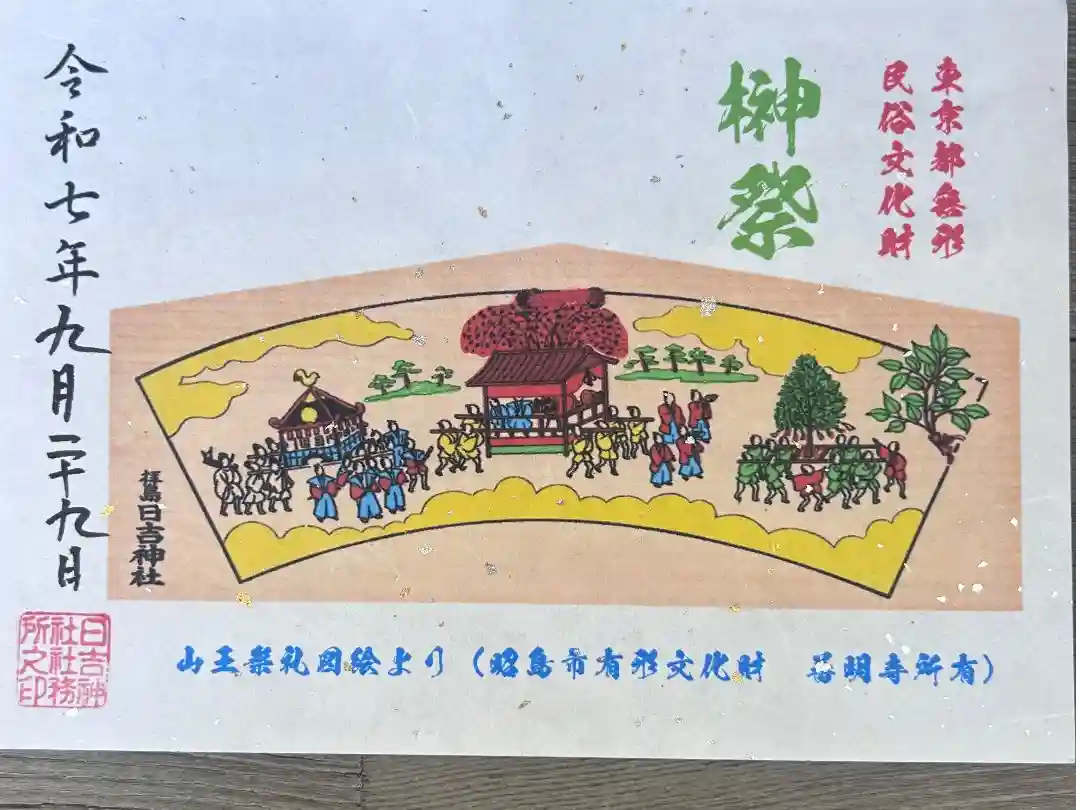 東京都無形
民俗文化財
榊祭
拝島日吉神社
令和七年九月二十九日
日吉神
社社務
所之印
山王祭礼図絵より（昭島市有形文化財　普明寺所有）